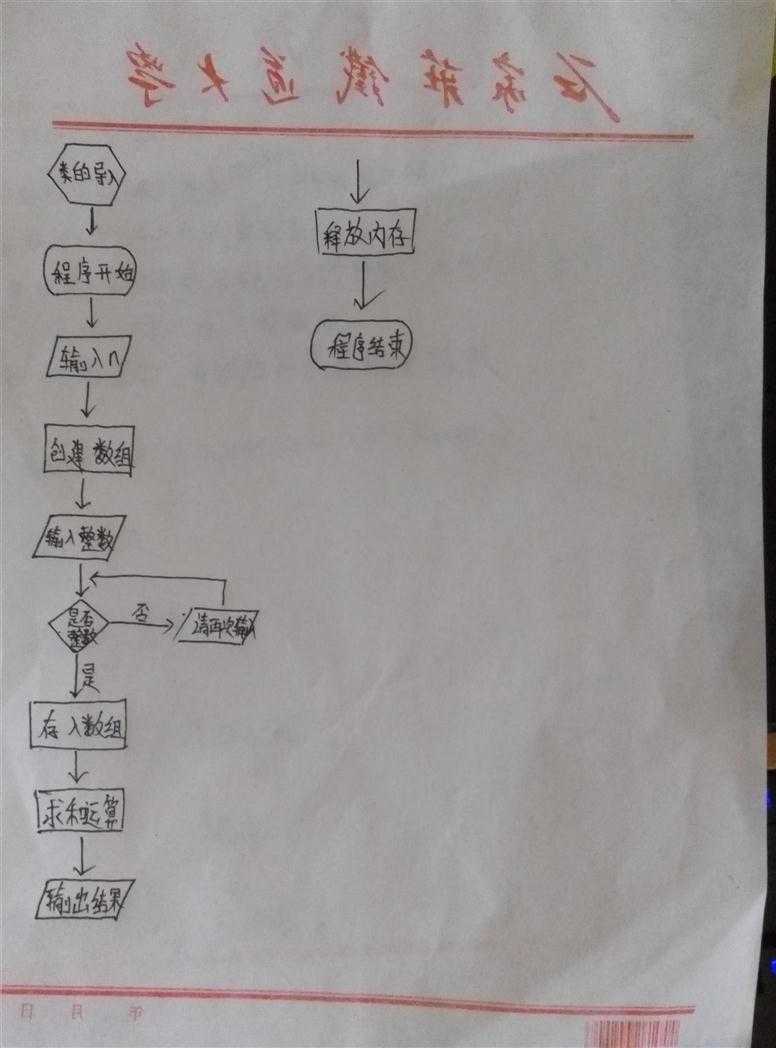 石家莊鐵道大學
类的导入
程序开始
输入n
创建数组
输入整数
是否
整数
否
请再次输入
是
存入数组
求和运算
输出结果
释放内存
程序结束
年 月 日